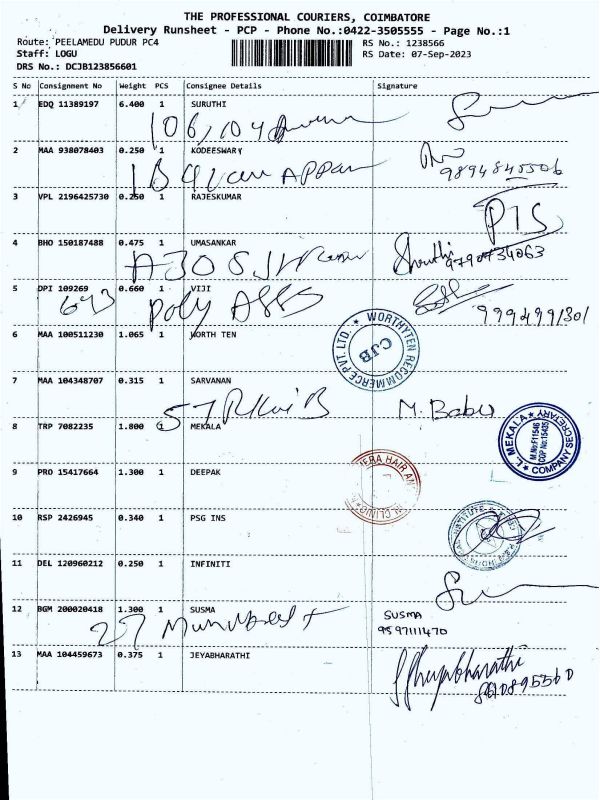 THE PROFESSIONAL COURIERS, COIMBATORE
Delivery Runsheet - PCP - Phone No.:0422-3505555 - Page No.:1
Route: PEELAMEDU PUDUR PC4 RS No.: 1238566
Staff: LOGU RS Date: 07-Sep-2023
DRS No.: DCJB123856601
S No Consignment No Weight PCS Consignee Details Signature
1 EDQ 11389197 6.400 1 SURUTHI
106, 104
2 MAA 938078403 0.250 1 KODEESWARY
9894845506
3 VPL 2196425730 0.250 1 RAJESKUMAR
4 BHO 150187488 0.475 1 UMASANKAR
Shruthi 9790734063
5 DPI 109269 0.660 1 VIJI
643 Poly
9994991301
6 MAA 100511230 1.065 1 WORTH TEN
WORTHYTEN RECOMMERCE PVT. LTD. CJB
7 MAA 104348707 0.315 1 SARVANAN
M. Babu
8 TRP 7082235 1.800 1 MEKALA
L. MEKALA COMPANY SECRETARY
9 PRO 15417664 1.300 1 DEEPAK
HAIR CLINIC
10 RSP 2426945 0.340 1 PSG INS
11 DEL 120960212 0.250 1 INFINITI
12 BGM 200020418 1.300 1 SUSMA
27
SUSMA
9597111470
13 MAA 104459673 0.375 1 JEYABHARATHI